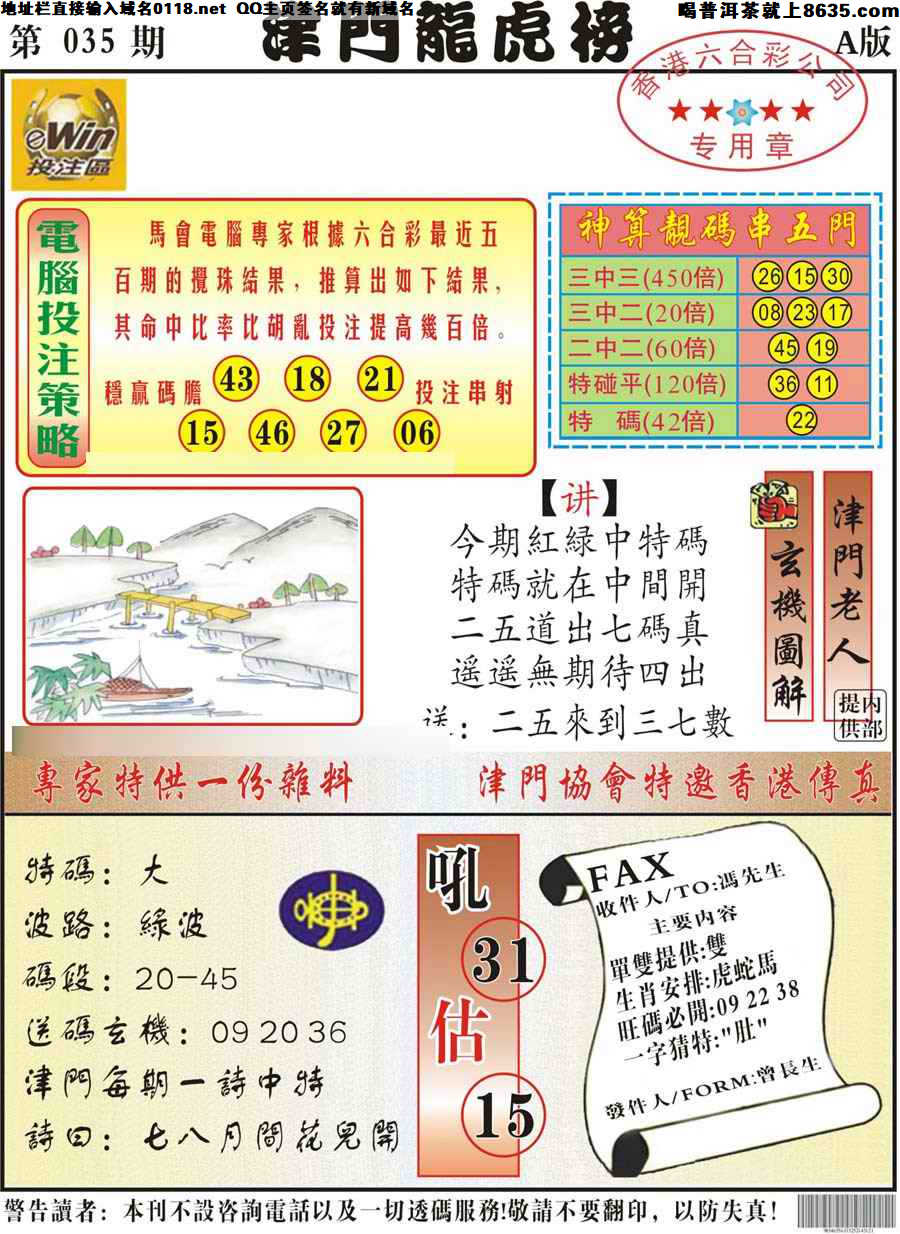 地址栏直接输入域名0118.net QQ主页签名就有新域名.
喝普洱茶就上8635.com
第 035 期
津門龍虎榜
A版
香港六合彩公司
专用章
eWin
投注區
電腦投注策略
馬會電腦專家根據六合彩最近五
百期的攪珠結果，推算出如下結果，
其命中比率比胡亂投注提高幾百倍。
穩贏碼膽 43 18 21 投注串射
15 46 27 06
神算靚碼串五門
三中三(450倍) 26 15 30
三中二(20倍) 08 23 17
二中二(60倍) 45 19
特碰平(120倍) 36 11
特 碼(42倍) 22
【讲】
今期紅緑中特碼
特碼就在中間開
二五道出七碼真
遥遥無期待四出
送：二五來到三七數
玄機圖解
津門老人
内部提供
專家特供一份雜料
津門協會特邀香港傳真
特碼：大
波路：綠波
碼段：20-45
送碼玄機：09 20 36
津門每期一詩中特
詩曰：七八月間花兒開
吼
31
估
15
FAX
收件人/TO:馮先生
主要内容
單雙提供:雙
生肖安排:虎蛇馬
旺碼必開:09 22 38
一字猜特:"肚"
發件人/FORM:曾長生
警告讀者：本刊不設咨詢電話以及一切透碼服務!敬請不要翻印，以防失真!